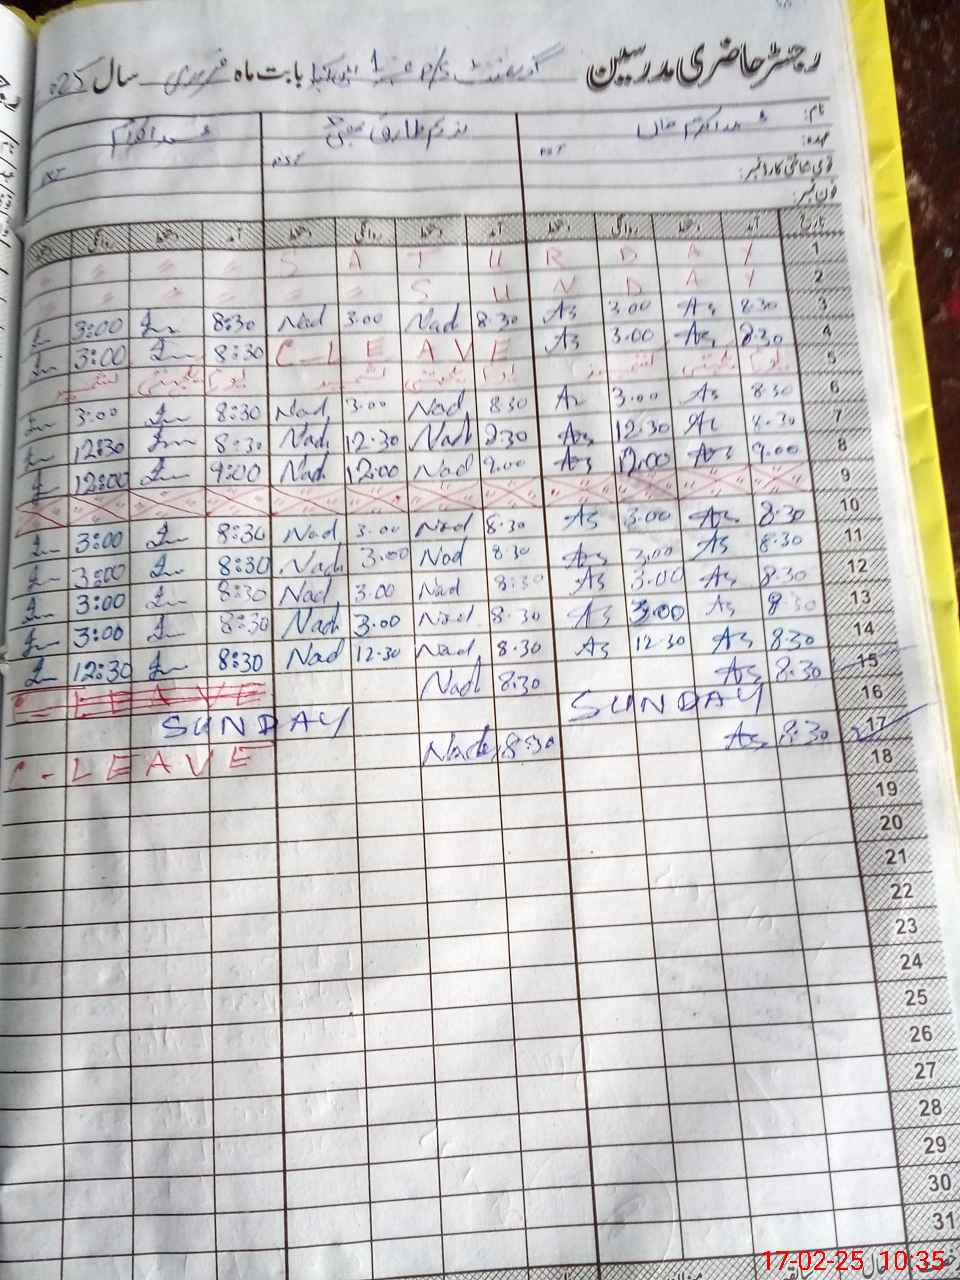 رجسٹر حاضری مدرسین گورنمنٹ بابت ماہ فروری سال 025
نام: محمد اکرم خان ندیم طارق محمد اکرام
عہدہ: PST PST PST
قومی شناختی کارڈ نمبر:
فون نمبر:
تاریخ آمد دستخط روانگی دستخط آمد دستخط روانگی دستخط آمد دستخط روانگی دستخط
1 S A T U R D A Y
2 S U N D A Y
3 8:30 As 3.00 As 8.30 Nad 3.00 Nad 8:30 3:00
4 8:30 As 3.00 As C-LEAVE 8:30 3:00
5 یوم یکجہتی کشمیر یوم یکجہتی کشمیر یوم یکجہتی کشمیر
6 8:30 As 3.00 As 8.30 Nad 3.00 Nad 8:30 3:00
7 8.30 As 12.30 As 8.30 Nad 12.30 Nad 8:30 12:30
8 9.00 As 12.00 As 9.00 Nad 12.00 Nad 9:00 12:00
9
10 8.30 As 3.00 As 8.30 Nad 3.00 Nad 8:30 3:00
11 8.30 As 3.00 As 8.30 Nad 3.00 Nad 8:30 3:00
12 8.30 As 3.00 As 8:30 Nad 3.00 Nad 8:30 3:00
13 8.30 As 3.00 As 8.30 Nad 3.00 Nad 8:30 3:00
14 8.30 As 12.30 As 8.30 Nad 12.30 Nad 8:30 12:30
15 8.30 As 8.30 Nad C-LEAVE
16 SUNDAY SUNDAY
17 8.30 As 8:30 Nad C-LEAVE
18
19
20
21
22
23
24
25
26
27
28
29
30
31
17-02-25 10:35